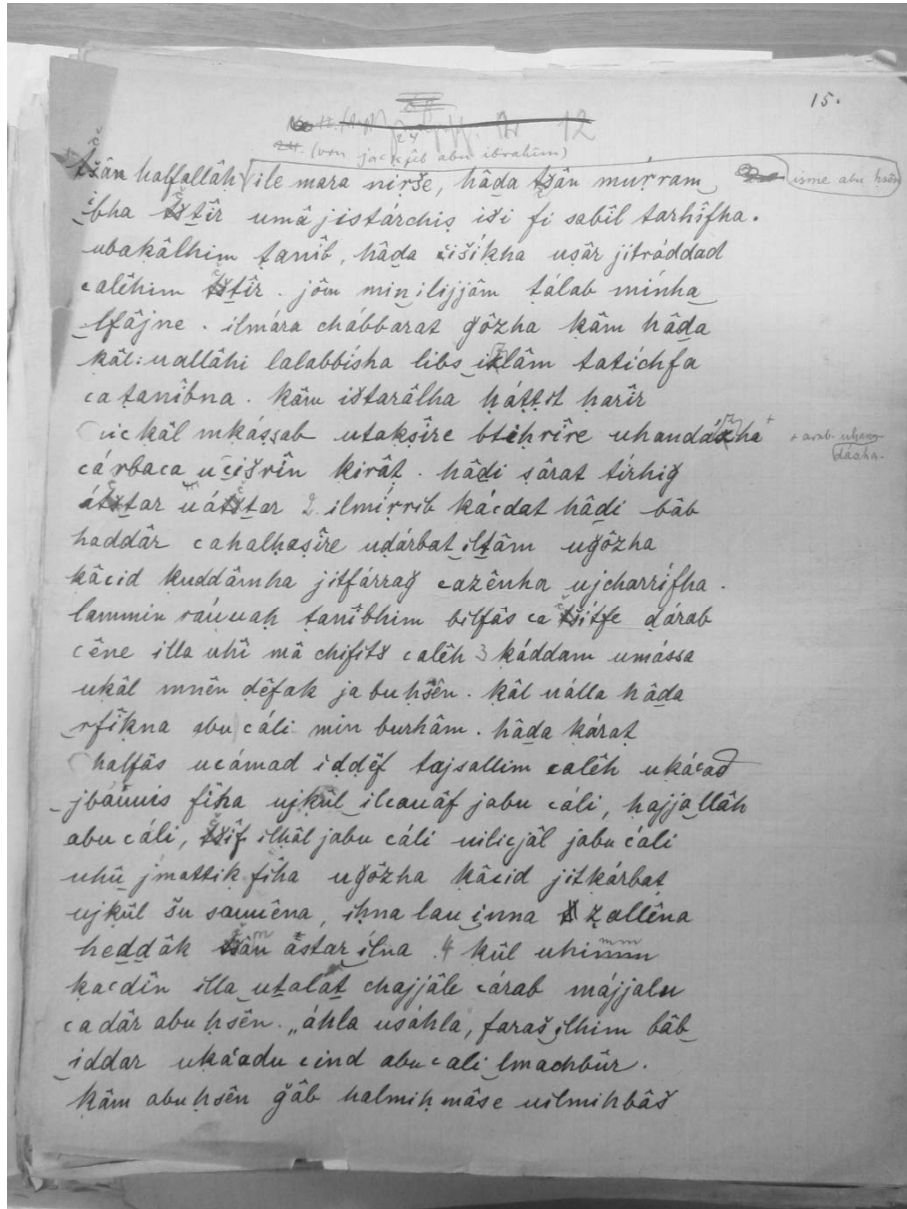 15.
12
24. (von jackûb abu ibrahîm)
tšân halfallâh ile mara nirše, hâḏa tšân muṛram isme abu ḥsên
ibha tštîr umâ jistárchiṣ iši fi sabîl tarhîfha.
ubaḳâlhim ṭanîb, hâḏa čišíkha uṣâr jitráddad
ꜥalêhim tštîr. jôm min ilijjâm ṭálab mínha
lfâjne. ilmára chábbarat ǧôzha ḳâm hâḏa
ḳâl: uallâhi lalabbísha libs izlâm tatíchfa
ꜥa ṭanîbna. ḳâm ištarâlha ḥáṭṭit ḥarîr
uꜥkâl mḳáṣṣab utaḳṣîre btiḥrîre uhandázha + + arab. uhandásha.
ꜥárbaꜥa uꜥišrîn ḳirâṭ. hâḏi ṣârat tírhiǧ
átštar uátštar 2 ilmíṛrib ḳáꜥdat hâḏi bâb
haddâr ꜥahalḥaṣîre uḍárbat ilṯâm uǧôzha
ḳâꜥid ḳuddâmha jitfárraǧ ꜥazênha ujcharrífha.
lammin ráuuaḥ ṭanîbhim bilfâs ꜥa tšítfe ḍárab
ꜥêne illa uhî mâ chifitš ꜥalêh 3 ḳáddam umássa
uḳâl mnên ḍêfak ja bu ḥsên. ḳâl uálla hâḏa
rfîḳna abu ꜥáli min burhâm. hâḏa ḳáraṭ
halfâs uꜥámad iḍḍêf tajsallim ꜥalêh uḳáꜥad
jbáuuis fîha ujḳûl ilꜥauâf jabu ꜥáli, ḥajjallâh
abu ꜥáli, tšîf ilḥâl jabu ꜥáli uilꜥjâl jabu ꜥáli
uhû jmattik fîha uǧôzha ḳâꜥid jitḳárbaṭ
ujḳûl šu sauuêna, iḥna lau inna ẓallêna
heḏḏâk tšân ástar ilna. 4 ḳûl uhimm
ḳaꜥdîn illa uṯaláṯ chajjâle ꜥárab májjalu
ꜥa dâr abu ḥsên. „áhla usáhla, faraš ilhim bâb
iddar uḳáꜥadu ꜥind abu ꜥali lmachbûr.
ḳâm abu ḥsên ǧâb halmiḥmâse uilmihbâš